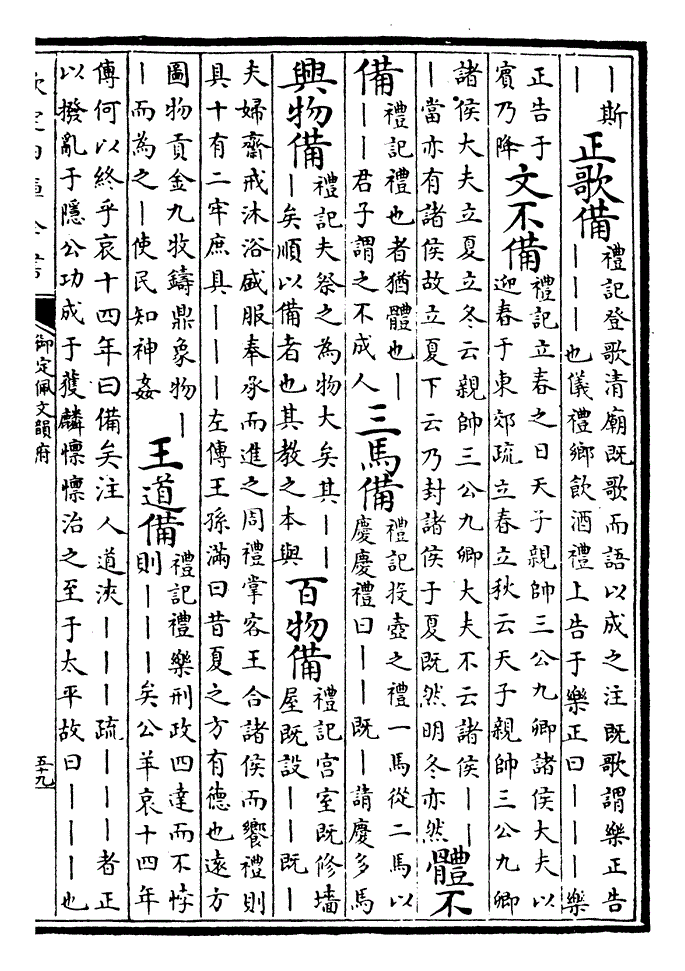 ｜斯
｜
正歌備
禮記登歌清廟既歌而語以成之注既歌謂樂正告
｜｜｜也儀禮鄉飲酒禮上告于樂正曰｜｜｜樂
正告于
賓乃降
文不備
禮記立春之日天子親帥三公九卿諸侯大夫以
迎春于東郊疏立春立秋云天子親帥三公九卿
諸侯大夫立夏立冬云親帥三公九卿大夫不云諸侯｜｜
｜當亦有諸侯故立夏下云乃封諸侯于夏既然明冬亦然
體不
備
禮記禮也者猶體也｜
｜｜君子謂之不成人
三馬備
禮記投壺之禮一馬從二馬以
慶慶禮曰｜｜既｜請慶多馬
興物備
禮記夫祭之為物大矣其｜｜
｜矣順以備者也其教之本與
百物備
禮記宮室既修墻
屋既設｜｜既｜
夫婦齋戒沐浴盛服奉承而進之周禮掌客王合諸侯而饗禮則
具十有二牢庶具｜｜｜左傳王孫滿曰昔夏之方有德也遠方
圖物貢金九牧鑄鼎象物｜
｜而為之｜使民知神姦
王道備
禮記禮樂刑政四達而不悖
則｜｜｜矣公羊哀十四年
傳何以終乎哀十四年曰備矣注人道浹｜｜｜疏｜｜｜者正
以撥亂于隱公功成于獲麟懍懍治之至于太平故曰｜｜｜也
欽定四庫全書
御定佩文韻府
五十九